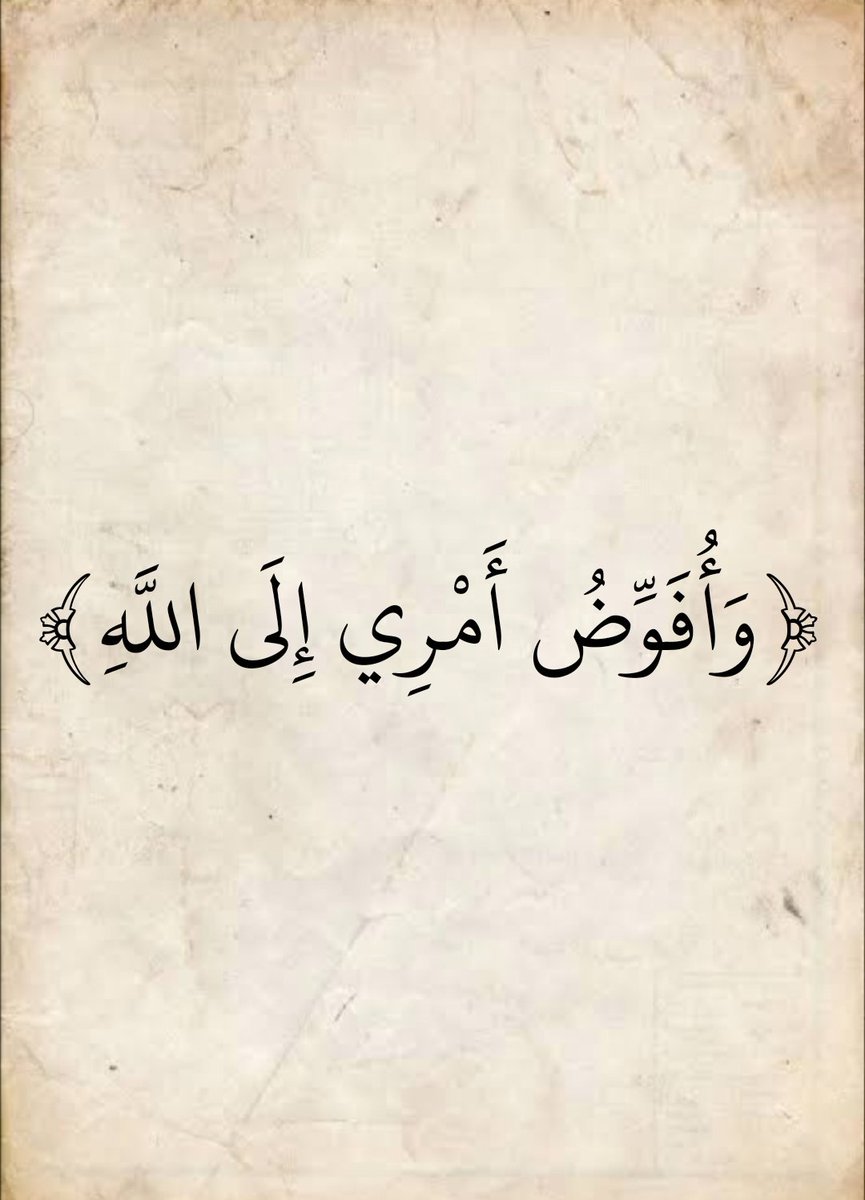 ﴿وَأُفَوِّضُ أَمْرِي إِلَى اللَّهِ﴾